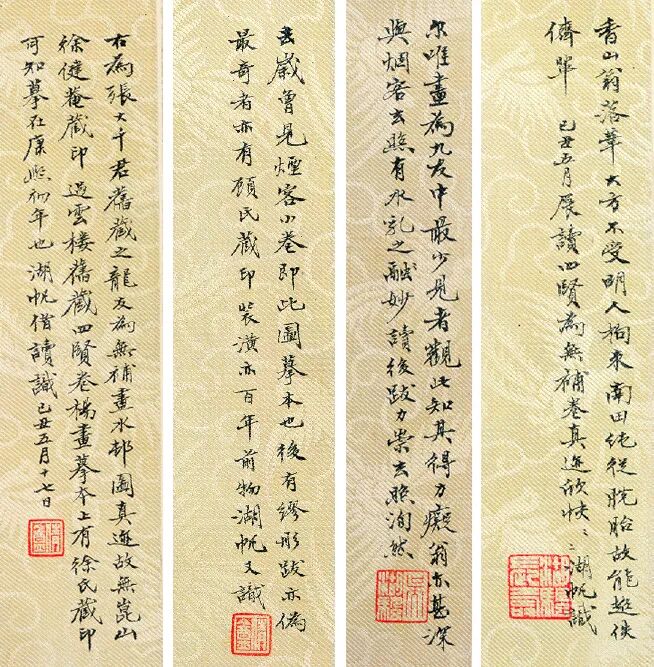 香山翁落筆大方不受明人拘束南田純從脫胎故能超佚
儕輩 己丑五月展讀四賢為無補卷真迹欣快〻〻湖帆識
尔唯畫為九友中最少見者觀此知其得力癡翁亦甚深
與烟客玄照有水乳之融妙讀後跋力崇玄照洵然
去歲曾見煙客小卷即此圖摹本也後有繆彤跋亦偽
最奇者亦有顧氏藏印裝潢亦百年前物湖帆又識
右為張大千君舊藏之龍友為無補畫水邨圖真迹故無崑山
徐健菴藏印過雲樓舊藏四賢卷楊畫摹本上有徐氏藏印
可知摹在康熙初年也湖帆借讀識己丑五月十七日